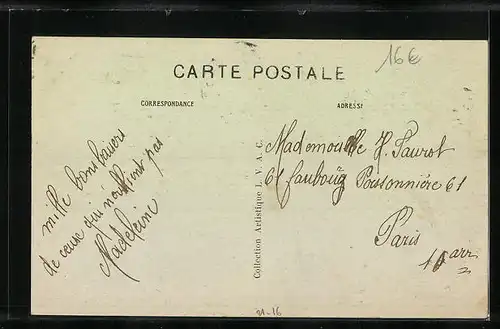 16€
CARTE POSTALE
CORRESPONDANCE
ADRESSE
mille bons baisers
de ceux qui n'oublient pas
Madeleine
Collection Artistique L. V. A. C.
Mademoiselle H. Faurot
61 faubourg Poissonnière 61
Paris
10 arr
21-16